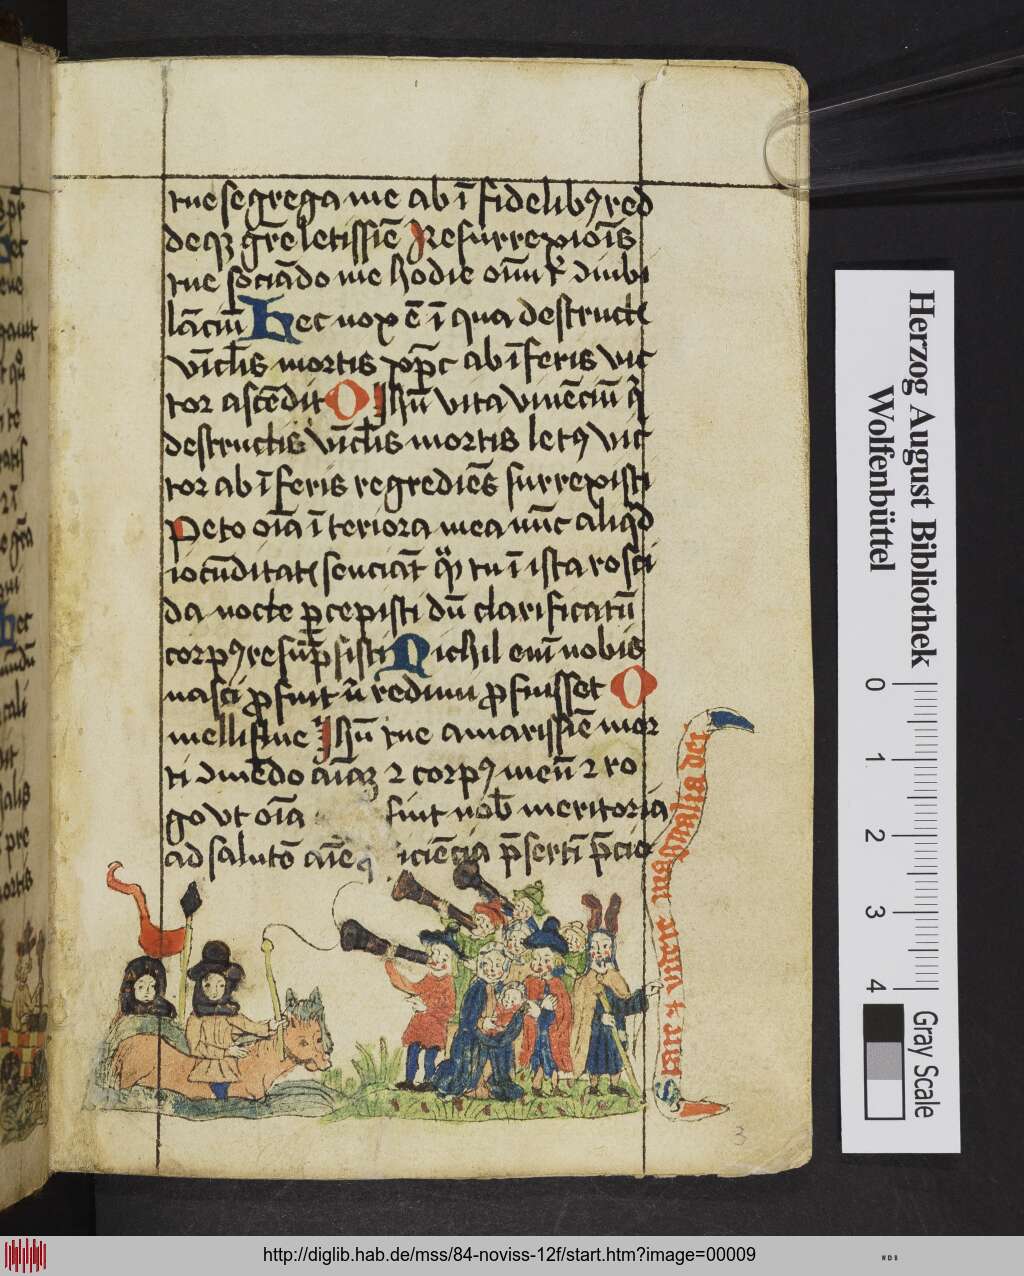 tue segrega me ab īfidelib9 red
deqз gr̄e letissīe Resurrexiois
tue sociādo me hodie
lāciū Hec nox ē ī qua destructis
vīclis mortis xp̄c ab īferis vic
tor ascēdit O Jhū vita vivēciū q̄
destructis vīclis mortis let9 vic
tor ab īferis regrediēs surrexisti
Peto oīa īteriora mea nūc aliqd
iocūditatis senciāt tu ī ista rosci
da nocte p̄cepisti dū clarificatū
corp9 resūp̄sisti Nichil enī nobis
nasci profuit n̄ redimi profuisset O
melliflue Jhū tue amarissīe mor
ti ꝛ corp9 meū ꝛ ro
go vt oīa fiūt nob̄ meritoria
ad salutē p̄sertī p̄cio
magnalia dei
Herzog August Bibliothek
Wolfenbüttel
0
1
2
3
4
Gray Scale
3
http://diglib.hab.de/mss/84-noviss-12f/start.htm?image=00009
WDB